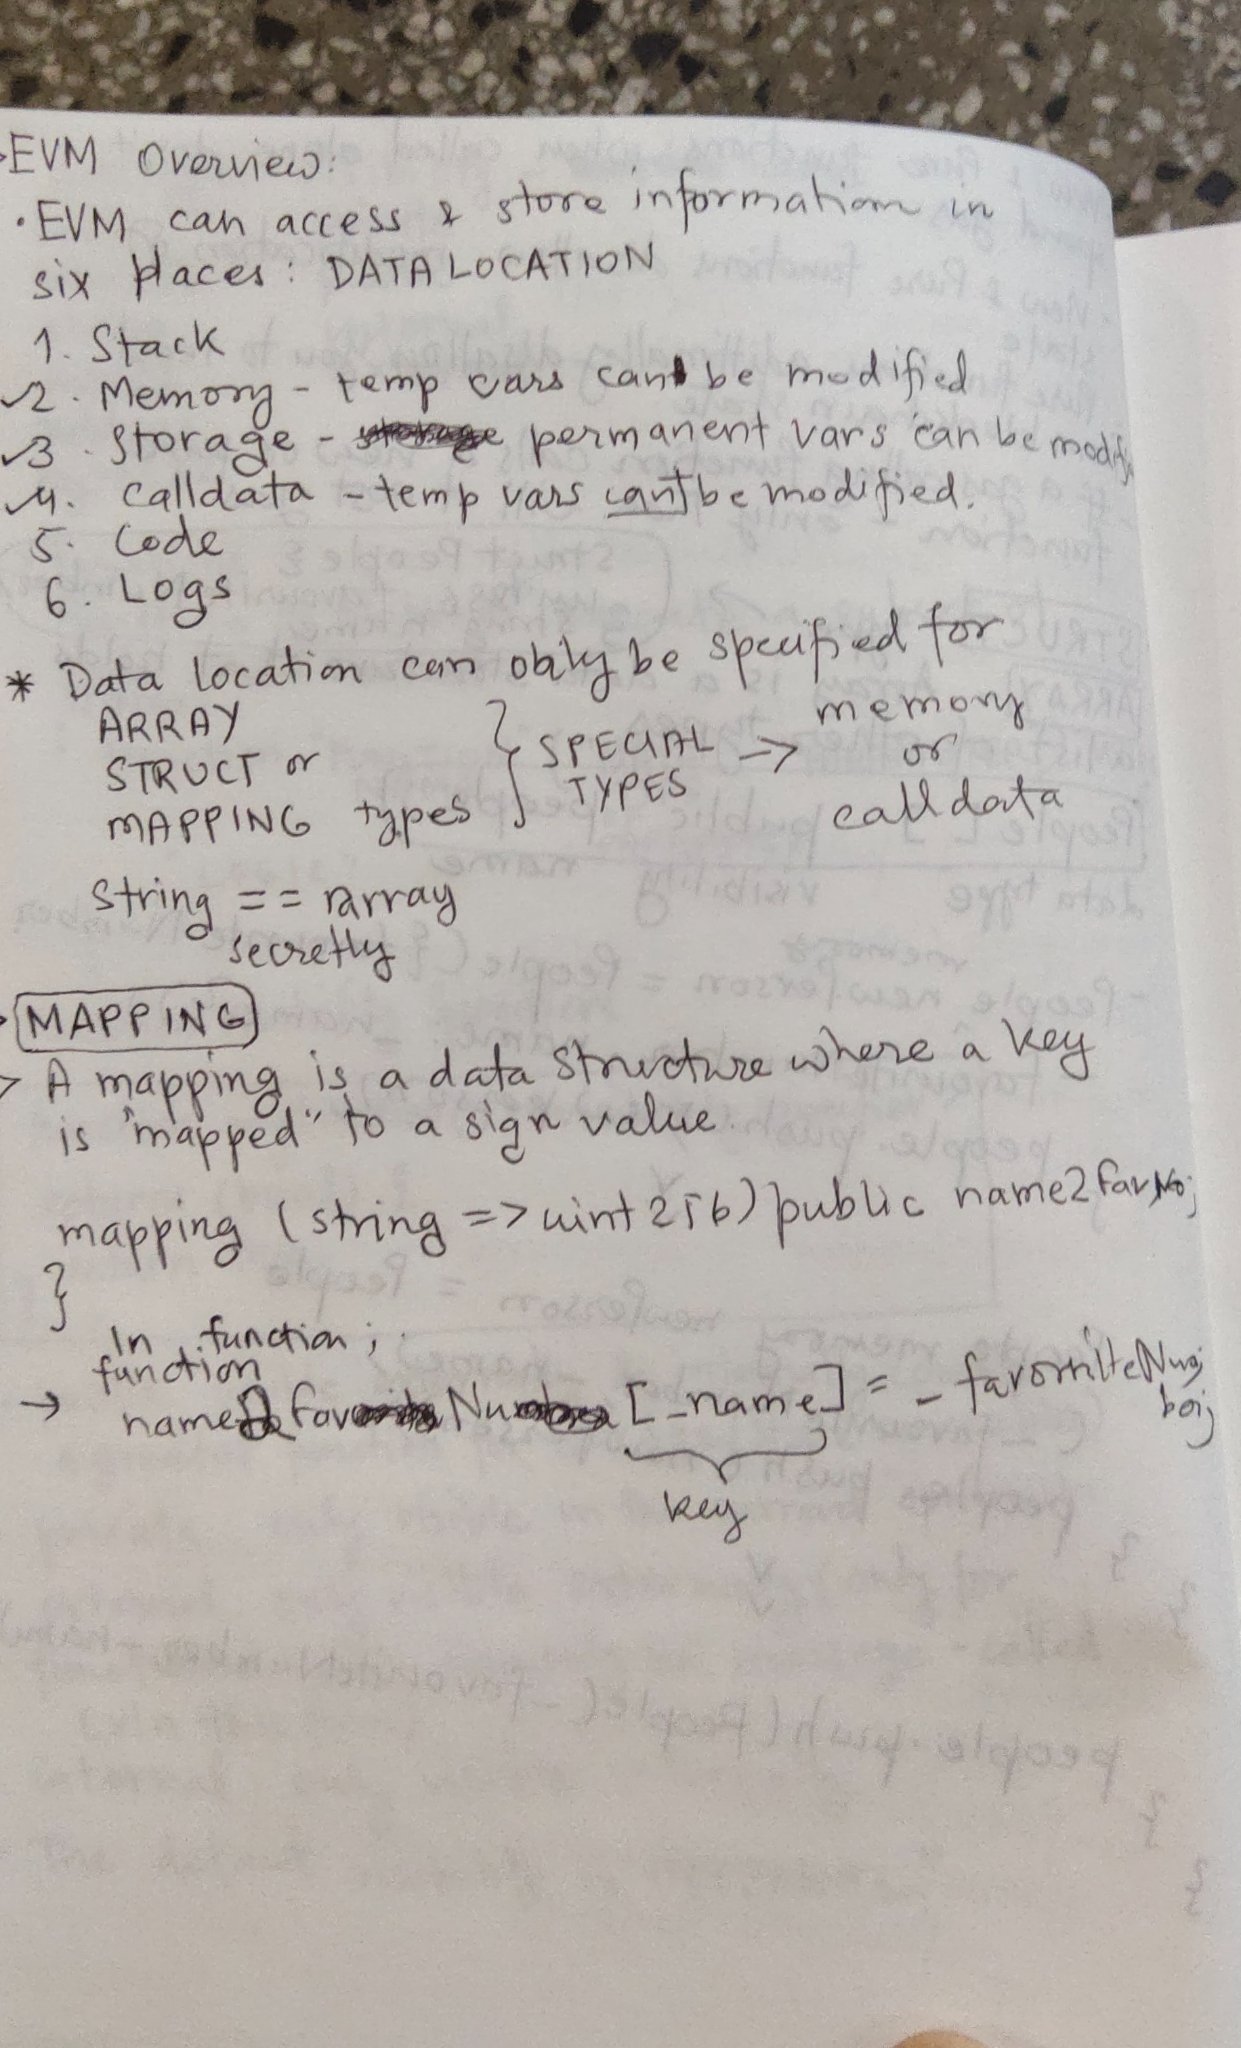 EVM Overview:
• EVM can access & store information in
six places: DATA LOCATION
1. Stack
✓2. Memory - temp vars can be modified
✓3. Storage - permanent vars can be modif
✓4. calldata - temp vars can't be modified.
5. Code
6. Logs
* Data location can only be specified for
ARRAY
STRUCT or
MAPPING types
} SPECIAL TYPES → memory or calldata
String == array
secretly
MAPPING
> A mapping is a data structure where a key
is "mapped" to a sign value.
mapping (string => uint256) public name2favNo;
}
In function;
function
→ name2favNu [_name] = _favorniteNum
key